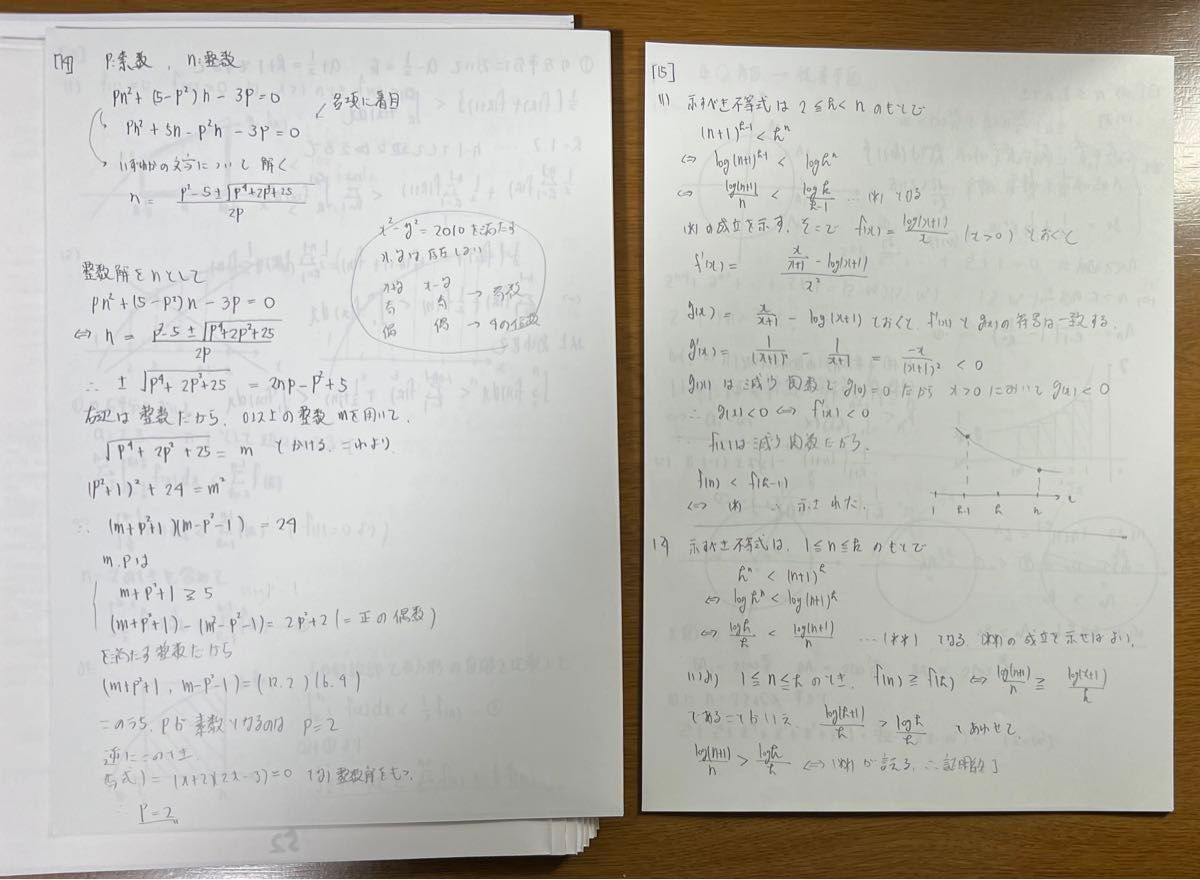 [14] P:素数, n:整数
Pn²+(5-P²)n-3P=0
各項に着目
Pn²+5n-P²n-3P=0
いずれかの文字について解く
n = (P²-5±√(P⁴+2P²+25))/2P
x²-y²=2010を満たす
x,yは存在しない
x+y x-y
奇 奇 → 奇数
偶 偶 → 4の倍数
整数解をnとして
Pn²+(5-P²)n-3P=0
⇔ n = (P²-5±√(P⁴+2P²+25))/2P
∴ ±√(P⁴+2P²+25) = 2nP-P²+5
右辺は整数だから, 0以上の整数mを用いて,
√(P⁴+2P²+25) = m とかける. これより
(P²+1)²+24=m²
∴ (m+P²+1)(m-P²-1) = 24
m,Pは
m+P²+1 ≧ 5
(m+P²+1)-(m-P²-1)=2P²+2(=正の偶数)
を満たす整数だから
(m+P²+1, m-P²-1)=(12,2)(6,4)
このうち, Pが素数となるのは P=2
逆にこのとき.
(与式)=(x+2)(2x-3)=0 となり整数解をもつ.
∴ P=2
[15]
(1) 示すべき不等式は 2≦k<n のもとで
(n+1)^(k-1) < k^n
⇔ log(n+1)^(k-1) < logk^n
⇔ log(n+1)/n < logk/(k-1) …(*) となる
(*)の成立を示す. そこで f(x)=log(x+1)/x (x>0) とおくと
f'(x)= (x/(x+1) - log(x+1))/x²
g(x)= x/(x+1) - log(x+1) とおくと, f'(x)とg(x)の符号は一致する.
g'(x)= 1/(x+1)² - 1/(x+1) = -x/(x+1)² < 0
g(x)は減少関数で g(0)=0 だから x>0において g(x)<0
∴ g(x)<0 ⇔ f'(x)<0
∴ f(x)は減少関数だから.
f(n) < f(k-1)
⇔ (*) ∴ 示された.
1 k-1 k n x
(2) 示すべき不等式は, 1≦n≦k のもとで
k^n < (n+1)^k
⇔ logk^n < log(n+1)^k
⇔ logk/k < log(n+1)/n …(**) となる. (**)の成立を示せばよい.
(1)より 1≦n≦kのとき. f(n)≧f(k) ⇔ log(n+1)/n ≧ log(k+1)/k
であることがいえ, log(k+1)/k > logk/k とあわせて
log(n+1)/n > logk/k ⇔ (**) が言える. ∴ 証明終]
52